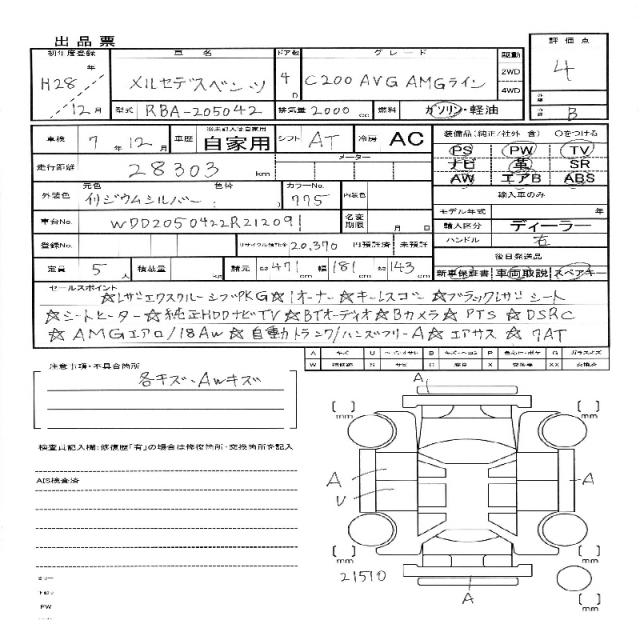 出品票
初年度登録 車名 ドア数 グレード 駆動 評価点
H28年 メルセデスベンツ 4D C200 AVG AMGライン 2WD 4WD 4
12月 型式 RBA-205042 排気量 2000cc 燃料 ガソリン・軽油 B
車検 7年12月 車歴 ※未記入は自家用 自家用 シフト AT 冷房 AC 装備品(純正/社外 含) Oをつける
PS PW TV
走行距離 28303 km メーター ナビ 革 SR
AW エアB ABS
外装色 元色 イリジウムシルバー カラーNo. 775 内装色 輸入車のみ
モデル年式 年
車台No. WDD2050422R212091 名変期限 月 日 輸入区分 ディーラー
登録No. リサイクル預託金 20,370 円預託済 未預託 ハンドル 右
後日発送品
定員 5人 積載量 諸元 471 幅 181 143 新車保証書 車両取説 スペアキー
セールスポイント
☆レザーエクスクルーシブPKG☆1オーナー☆キーレスゴー☆ブラックレザーシート
☆シートヒーター☆純正HDDナビTV☆BTオーディオ☆Bカメラ☆PTS☆DSRC
☆AMGエアロ/18AW☆自動トランク/ハンズフリーA☆エアサス☆7AT
A U B P G
W S C X XX
注意事項・不具合箇所
各キズ・AWキズ
検査員記入欄:修復歴「有」の場合は修復箇所・交換箇所を記入
AIS検査済
A
[ ]mm [ ]mm
A A
U
[ ]mm [ ]mm
21510
A
[ ]mm
PW